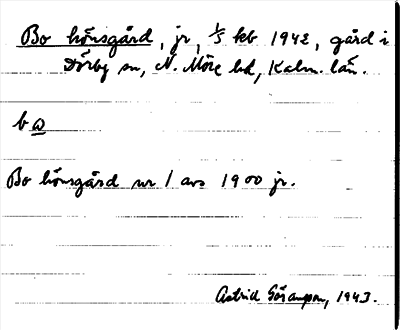 Bo hönsgård, jr, 1/5 kb 1942, gård i
Dörby sn, N. Möre hd, Kalm. län.
b a
Bo hönsgård nr 1 avs 1900 jr.
Astrid Göransson, 1943.